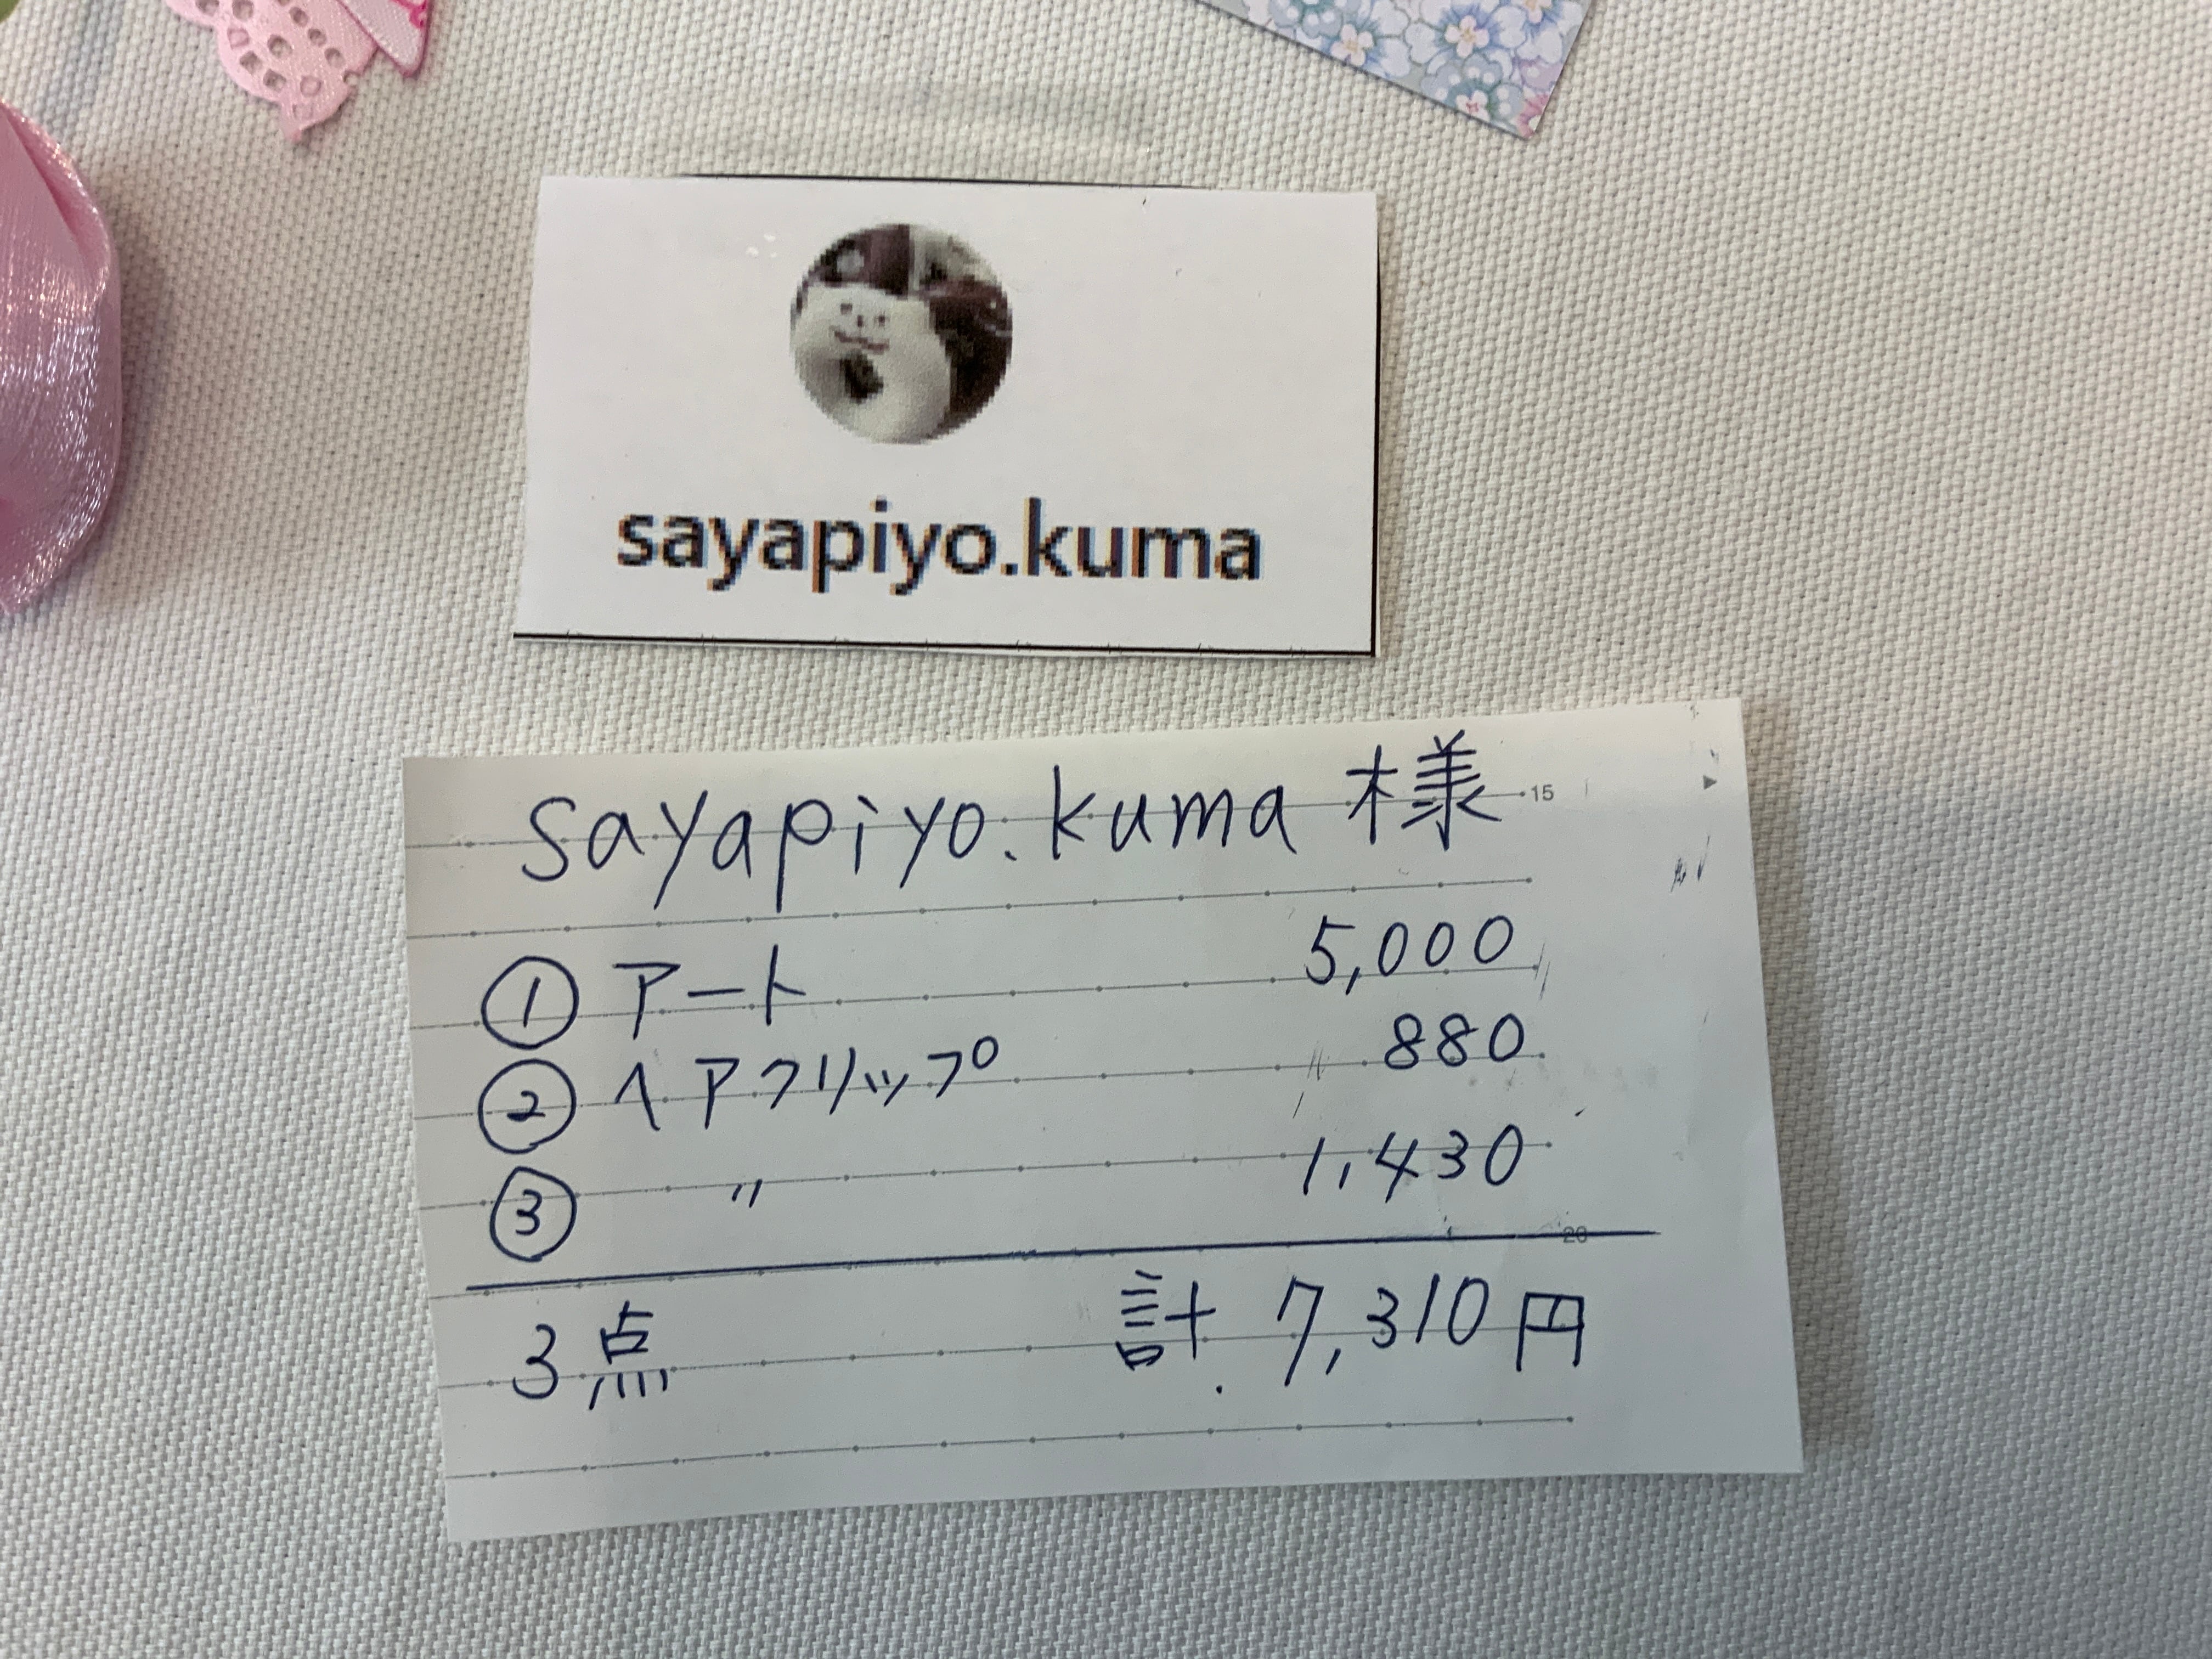 sayapiyo.kuma
sayapiyo.kuma 様
15
① アート 5,000
② ヘアクリップ 880
③ 〃 1,430
20
3点 計 7,310円